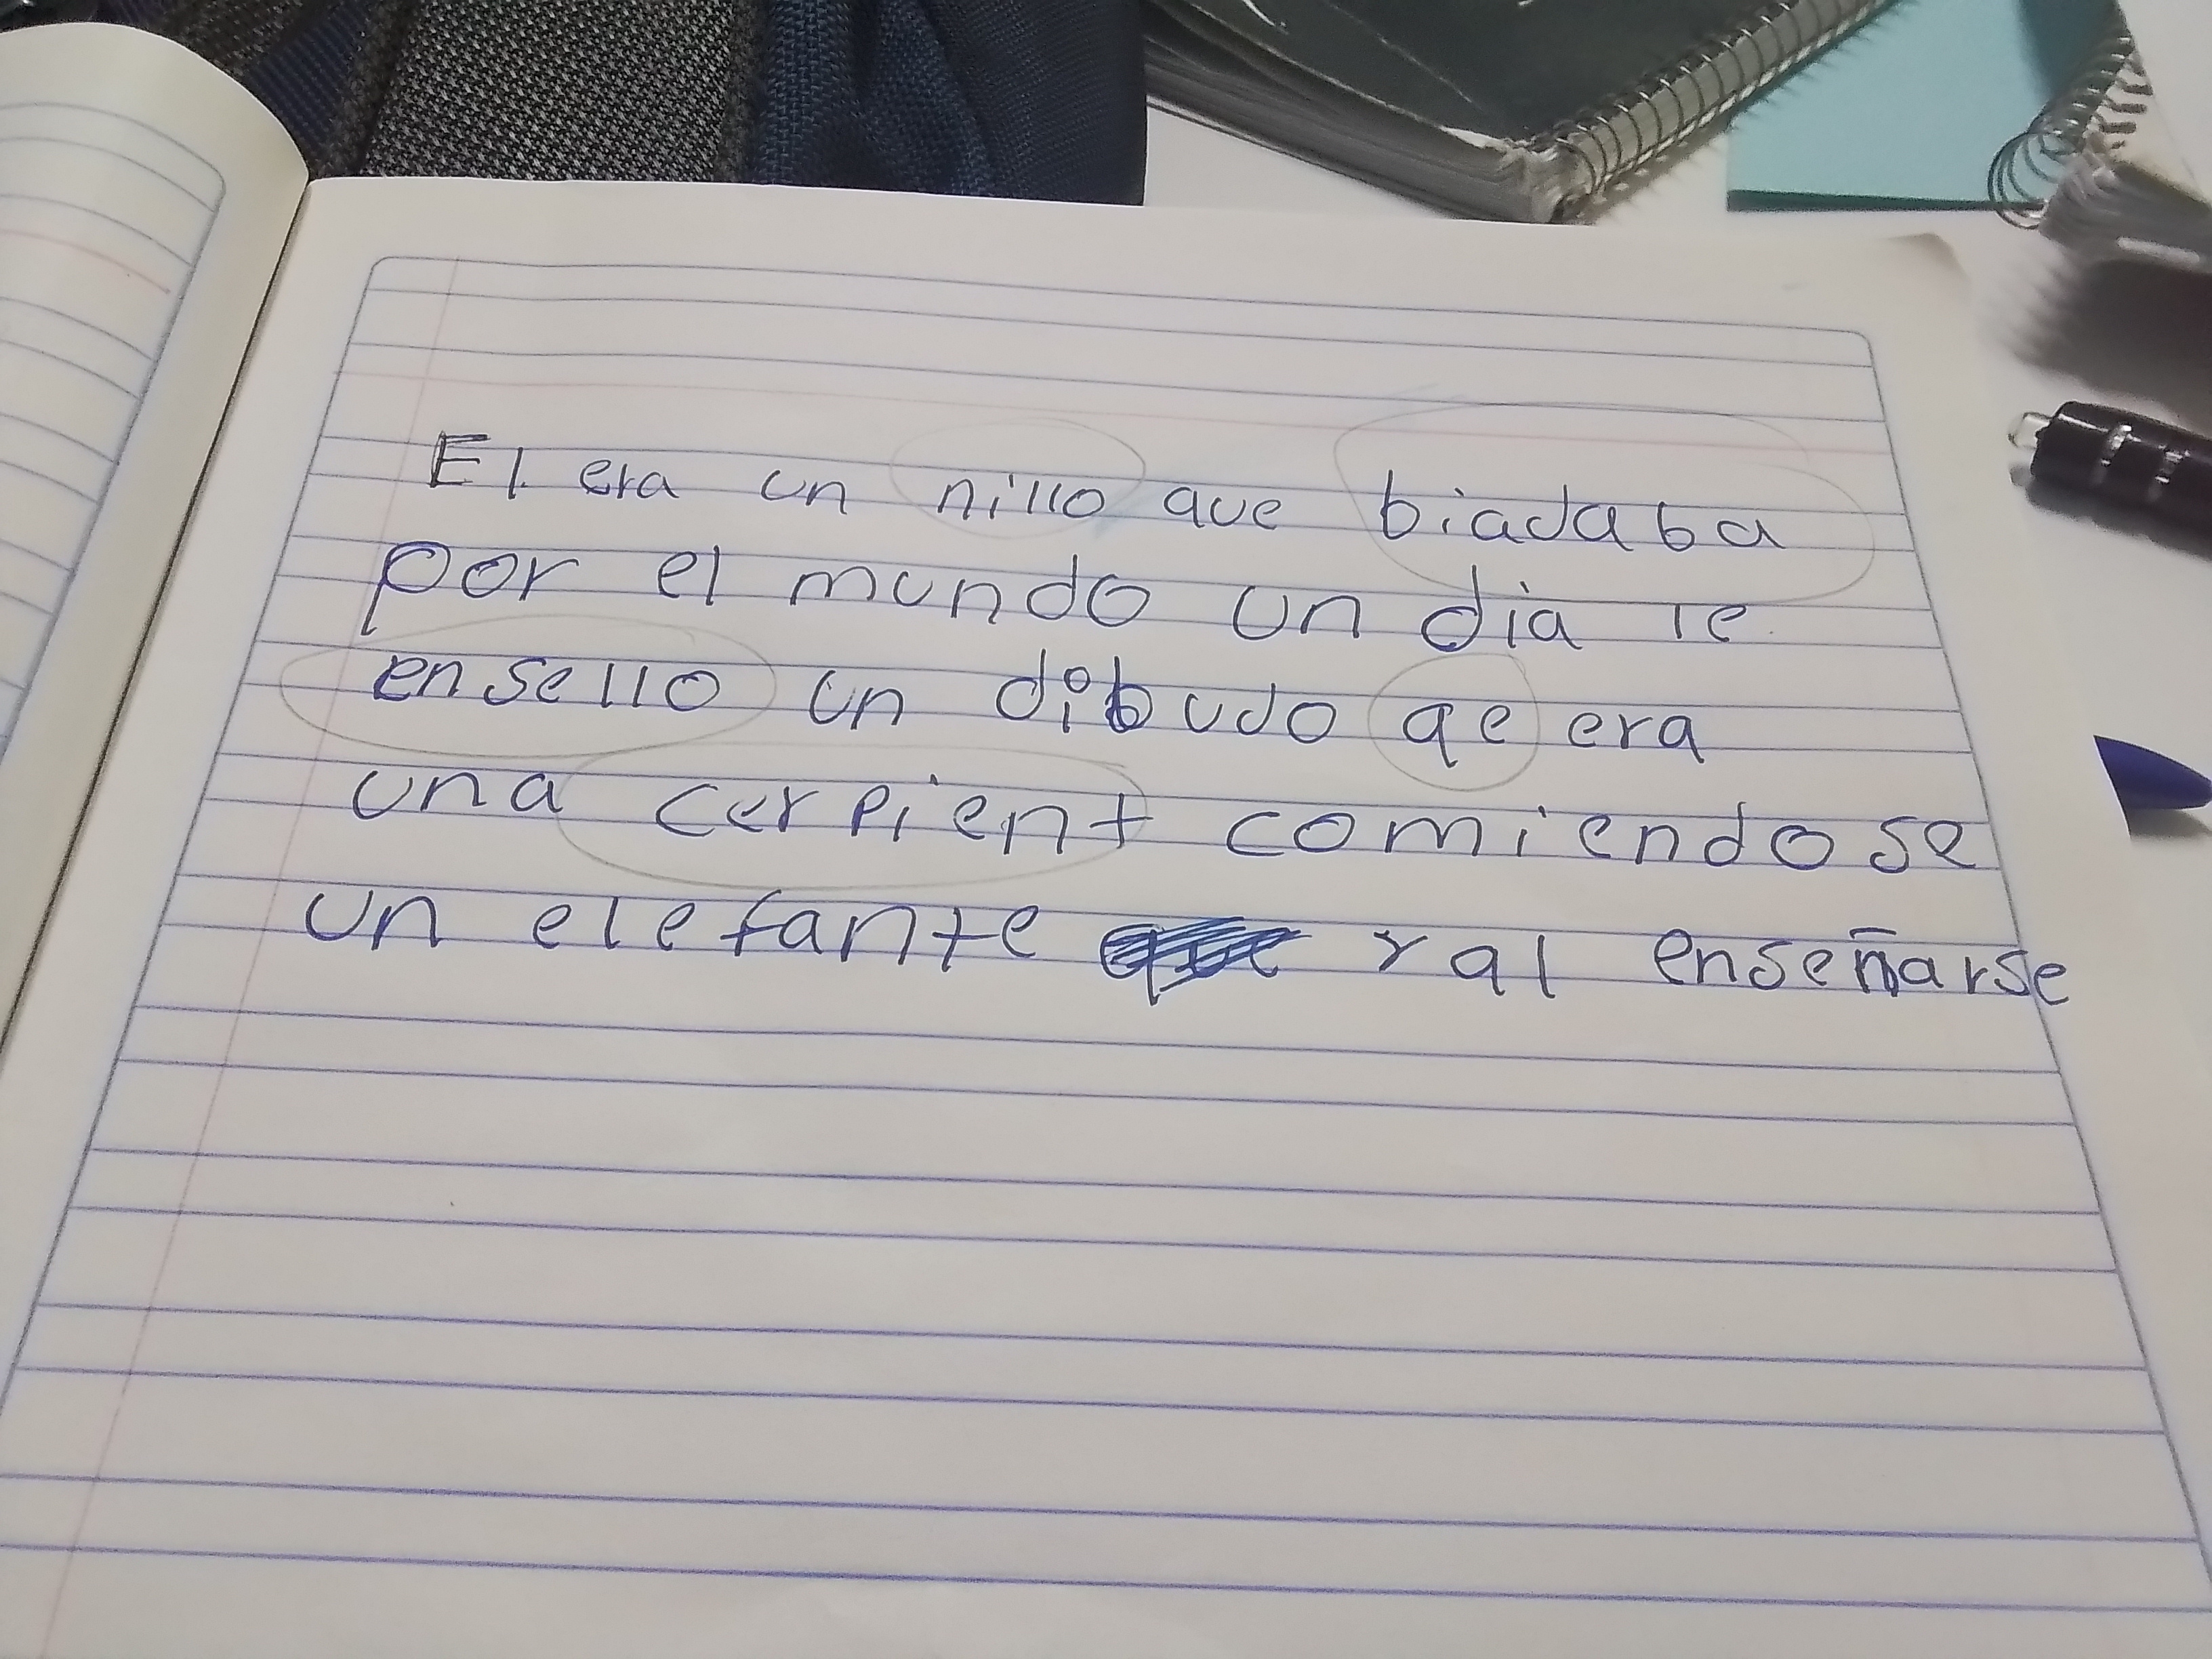 El era un nillo que biajaba
por el mundo un dia le
ensello un dibujo qe era
una cerpient comiendose
un elefante y al enseñarse